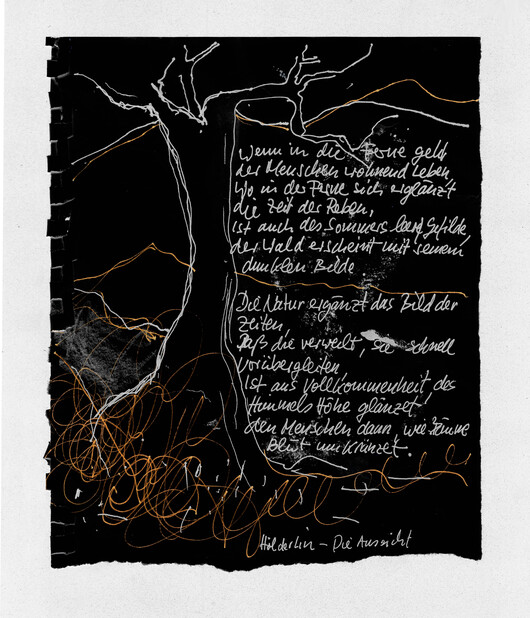 Wenn in die Ferne geht
der Menschen wohnend Leben,
Wo in der Ferne sich erglänzt
die Zeit der Reben,
ist auch des Sommers leer Gefilde,
der Wald erscheint mit seinem
dunklen Bilde
Die Natur ergänzt das Bild der
Zeiten,
Daß die verweilt, sie schnell
vorübergleiten
Ist aus Vollkommenheit des
Himmels Höhe glänzet
den Menschen dann, wie Bäume
Blüt umkränzet.
Hölderlin – Die Aussicht